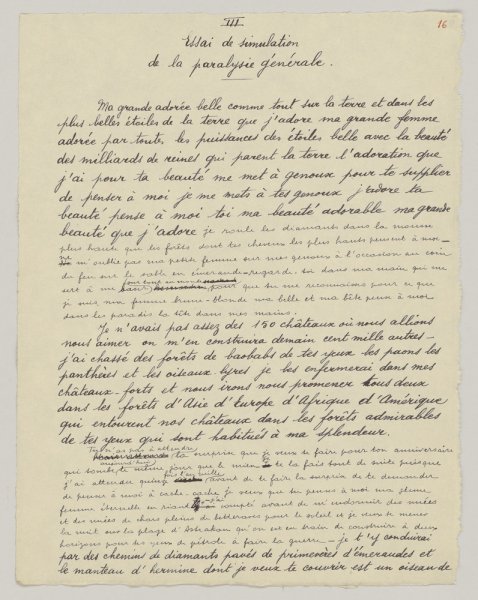 III
16
Essai de simulation
de la paralysie générale.
Ma grande adorée belle comme tout sur la terre et dans les
plus belles étoiles de la terre que j'adore ma grande femme
adorée par toutes les puissances des étoiles belle avec la beauté
des milliards de reines qui parent la terre l'adoration que
j'ai pour ta beauté me met à genoux pour te supplier
de penser à moi je me mets à tes genoux j'adore ta
beauté pense à moi toi ma beauté adorable ma grande
beauté que j'adore je roule les diamants dans la mousse
plus haute que les forêts dont tes cheveux les plus hauts pensent à moi –
ne m'oublie pas ma petite femme sur mes genoux à l'occasion au coin
du feu sur le sable en émeraude – regarde-toi dans ma main qui me
sert à me pour que tu me reconnaisses pour ce que
je suis ma femme brune-blonde ma belle et ma bête pense à moi
dans les paradis la tête dans mes mains.
Je n'avais pas assez des 150 châteaux où nous allions
nous aimer on m'en construira demain cent mille autres –
j'ai chassé des forêts de baobabs de tes yeux les paons les
panthères et les oiseaux-lyres je les enfermerai dans mes
châteaux-forts et nous irons nous promener tous deux
dans les forêts d'Asie d'Europe d'Afrique d'Amérique
qui entourent nos châteaux dans les forêts admirables
de tes yeux qui sont habitués à ma splendeur.
Tu n'as pas à attendre
la surprise que je veux te faire pour ton anniversaire
aujourd'hui
qui tombe le même jour que le mien – je te la fais tout de suite puisque
j'ai attendu quinze avant de te faire la surprise de te demander
de penser à moi à cache-cache je veux que tu penses à moi ma jeune
femme éternelle en riant j'ai compté avant de m'endormir des nuées
et des nuées de chars pleins de betteraves pour le soleil et je veux te mener
la nuit sur la plage d'Astrakan qu'on est en train de construire à deux
horizons pour tes yeux de pétrole à faire la guerre – je t'y conduirai
par des chemins de diamants pavés de primevères d'émeraudes et
le manteau d'hermine dont je veux te couvrir est un oiseau de